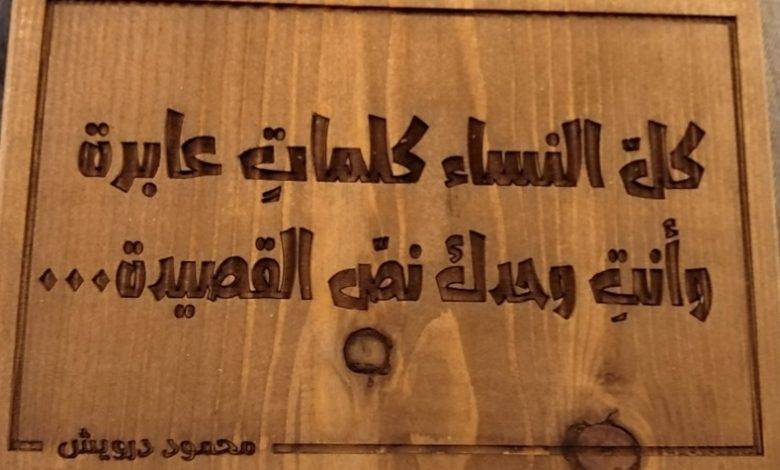 كلّ النساء كلماتٍ عابرة
وأنتِ وحدكْ نصّ القصيدة...
محمود درويش